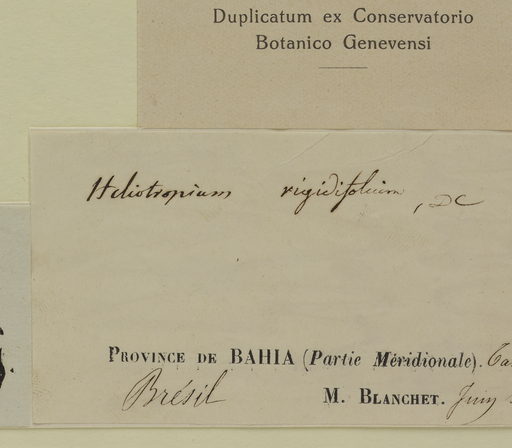 Duplicatum ex Conservatorio
Botanico Genevensi
Heliotropium rigidifolium, DC
Province de BAHIA (Partie Méridionale).
Brésil M. Blanchet.